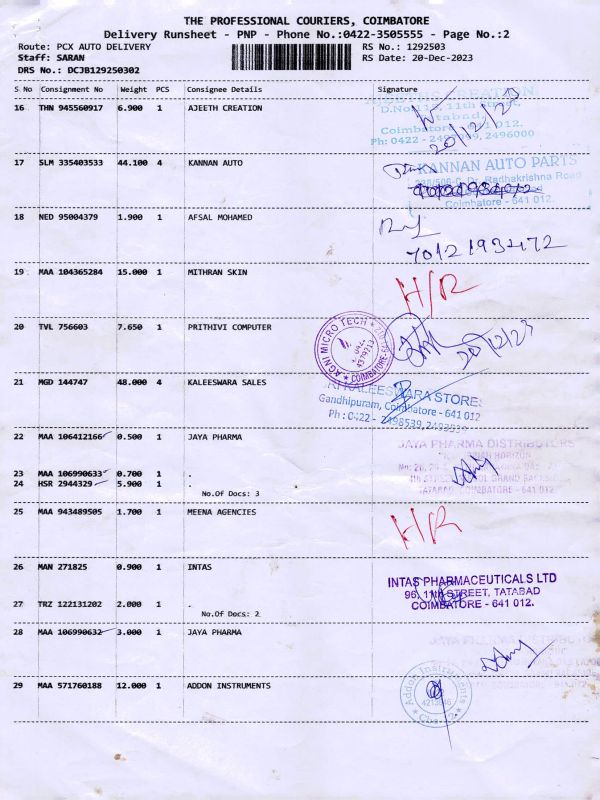 THE PROFESSIONAL COURIERS, COIMBATORE
Delivery Runsheet - PNP - Phone No.:0422-3505555 - Page No.:2
Route: PCX AUTO DELIVERY RS No.: 1292503
Staff: SARAN RS Date: 20-Dec-2023
DRS No.: DCJB129250302
S No Consignment No Weight PCS Consignee Details Signature
16 THN 945560917 6.900 1 AJEETH CREATION
AJEETH CREATIONS
11th Street,
Tatabad,
Coimbatore - 641 012.
Ph: 0422 - 2496000
20/12/23
17 SLM 335403533 44.100 4 KANNAN AUTO
KANNAN AUTO PARTS
Dr. Radhakrishna Road
Coimbatore - 641 012.
18 NED 95004379 1.900 1 AFSAL MOHAMED
7012193472
19 MAA 104365284 15.000 1 MITHRAN SKIN
H/R
20 TVL 756603 7.650 1 PRITHIVI COMPUTER
AGNI MICRO TECH
COIMBATORE
20/12/23
21 MGD 144747 48.000 4 KALEESWARA SALES
SRI KALEESWARA STORES
Gandhipuram, Coimbatore - 641 012
Ph : 0422 - 2498539, 2493539
22 MAA 106412166 0.500 1 JAYA PHARMA
JAYA PHARMA DISTRIBUTORS
23 MAA 106990633 0.700 1 .
24 HSR 2944329 5.900 1 .
No.Of Docs: 3
TATABAD, COIMBATORE - 641 012.
25 MAA 943489505 1.700 1 MEENA AGENCIES
H/R
26 MAN 271825 0.900 1 INTAS
INTAS PHARMACEUTICALS LTD
96, 11th STREET, TATABAD
COIMBATORE - 641 012.
27 TRZ 122131202 2.000 1 .
No.Of Docs: 2
28 MAA 106990632 3.000 1 JAYA PHARMA
29 MAA 571760188 12.000 1 ADDON INSTRUMENTS
Addon Instruments
Cbe-12